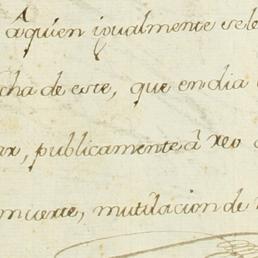 â quien igualmente se le
cha de este, que en dia
ar, publicamente â reo
muerte, mutilacion de